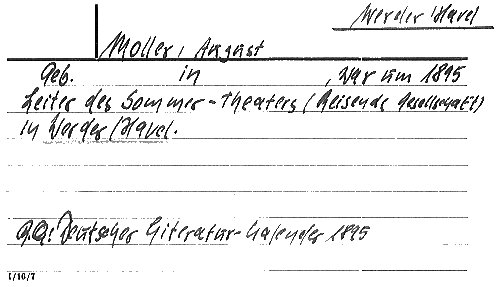 Werder/Havel
Moller, August
Geb. in , war um 1895
Leiter des Sommer-Theaters (Reisende Gesellschaft)
in Werder/Havel.
a.a: Deutscher Literatur-Kalender 1895
1/10/7